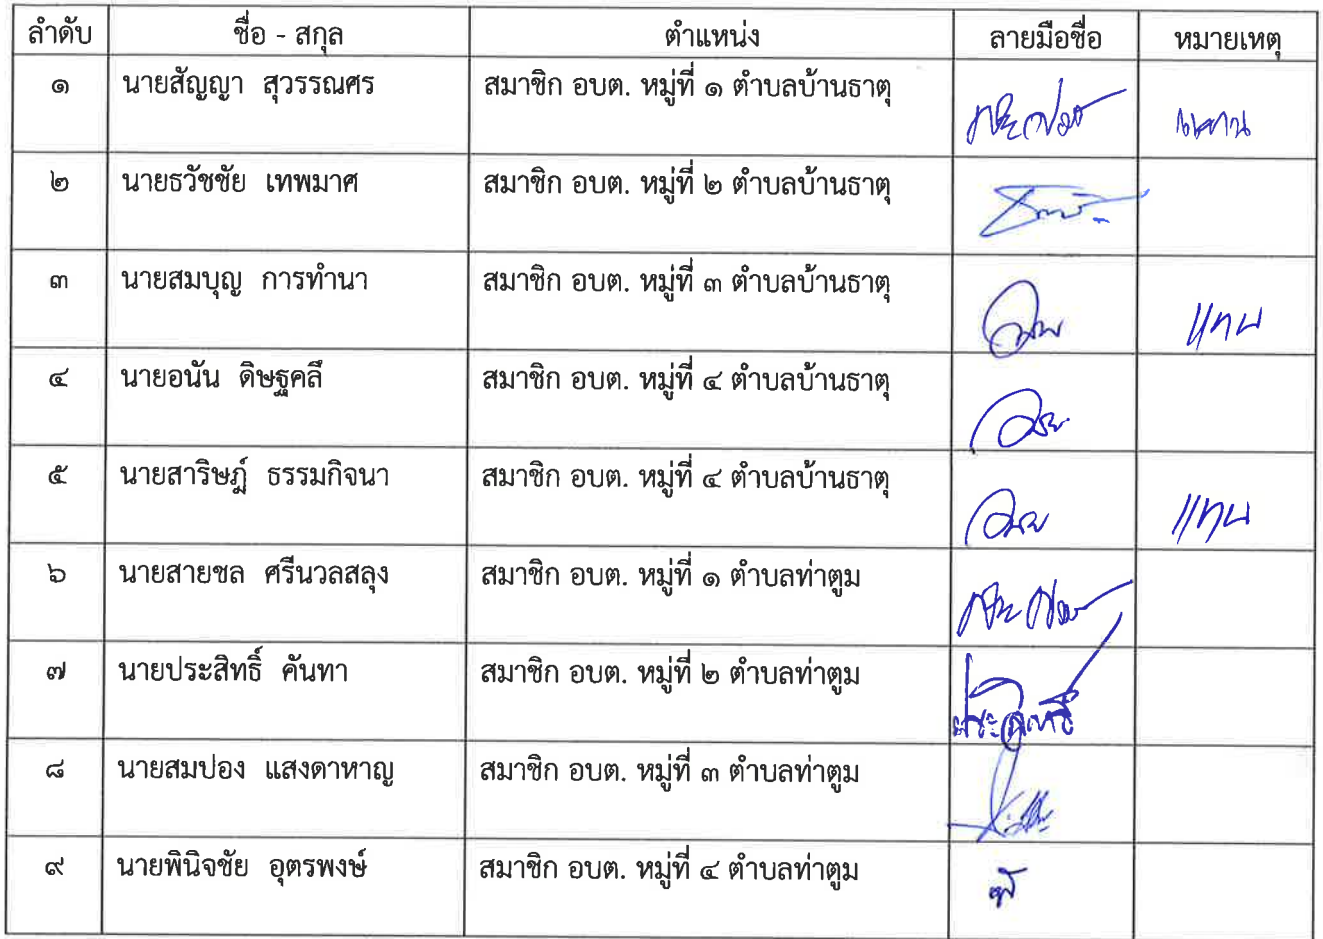 ลำดับ ชื่อ - สกุล ตำแหน่ง ลายมือชื่อ หมายเหตุ
๑ นายสัญญา สุวรรณศร สมาชิก อบต. หมู่ที่ ๑ ตำบลบ้านธาตุ แทน
๒ นายธวัชชัย เทพมาศ สมาชิก อบต. หมู่ที่ ๒ ตำบลบ้านธาตุ
๓ นายสมบุญ การทำนา สมาชิก อบต. หมู่ที่ ๓ ตำบลบ้านธาตุ แทน
๔ นายอนัน ดิษฐคลี สมาชิก อบต. หมู่ที่ ๔ ตำบลบ้านธาตุ
๕ นายสาริษฎ์ ธรรมกิจนา สมาชิก อบต. หมู่ที่ ๔ ตำบลบ้านธาตุ แทน
๖ นายสายชล ศรีนวลสลุง สมาชิก อบต. หมู่ที่ ๑ ตำบลท่าตูม
๗ นายประสิทธิ์ คันทา สมาชิก อบต. หมู่ที่ ๒ ตำบลท่าตูม ประสิทธิ์
๘ นายสมปอง แสงดาหาญ สมาชิก อบต. หมู่ที่ ๓ ตำบลท่าตูม
๙ นายพินิจชัย อุตรพงษ์ สมาชิก อบต. หมู่ที่ ๔ ตำบลท่าตูม